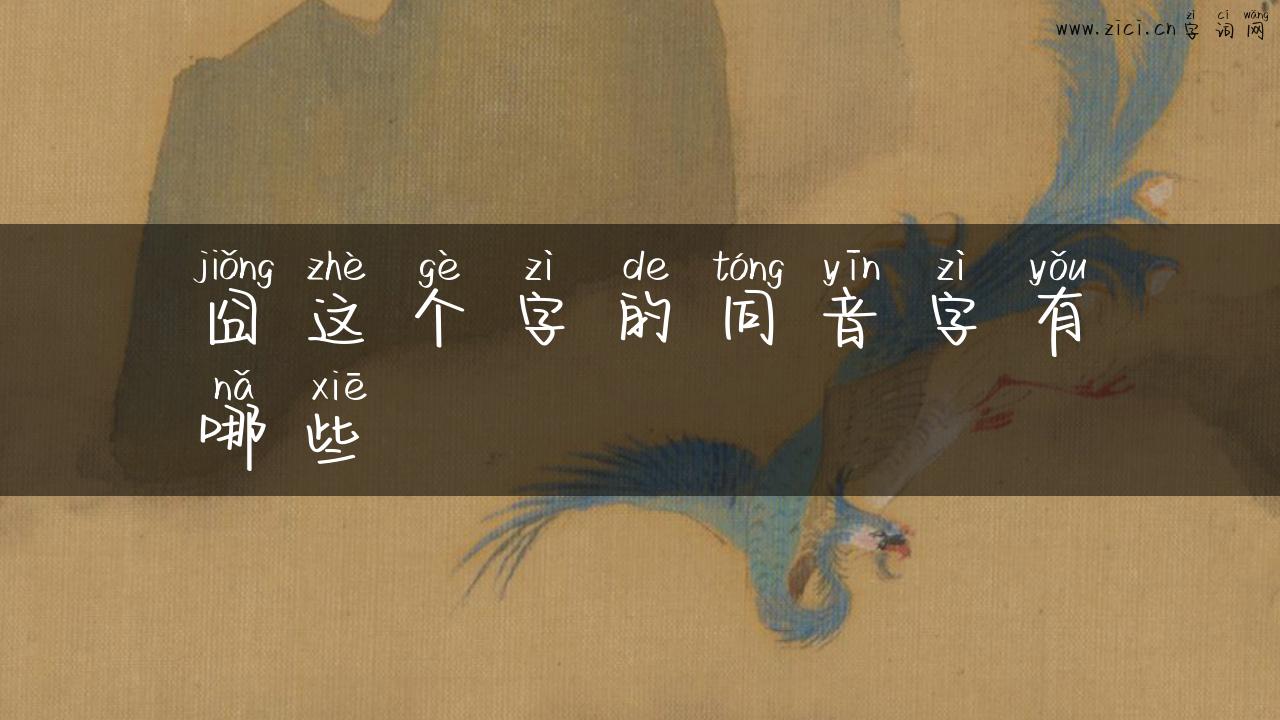 zì cí wǎng
www.zici.cn 字 词 网
jiǒng zhè gè zì de tóng yīn zì yǒu
囧 这 个 字 的 同 音 字 有
nǎ xiē
哪 些